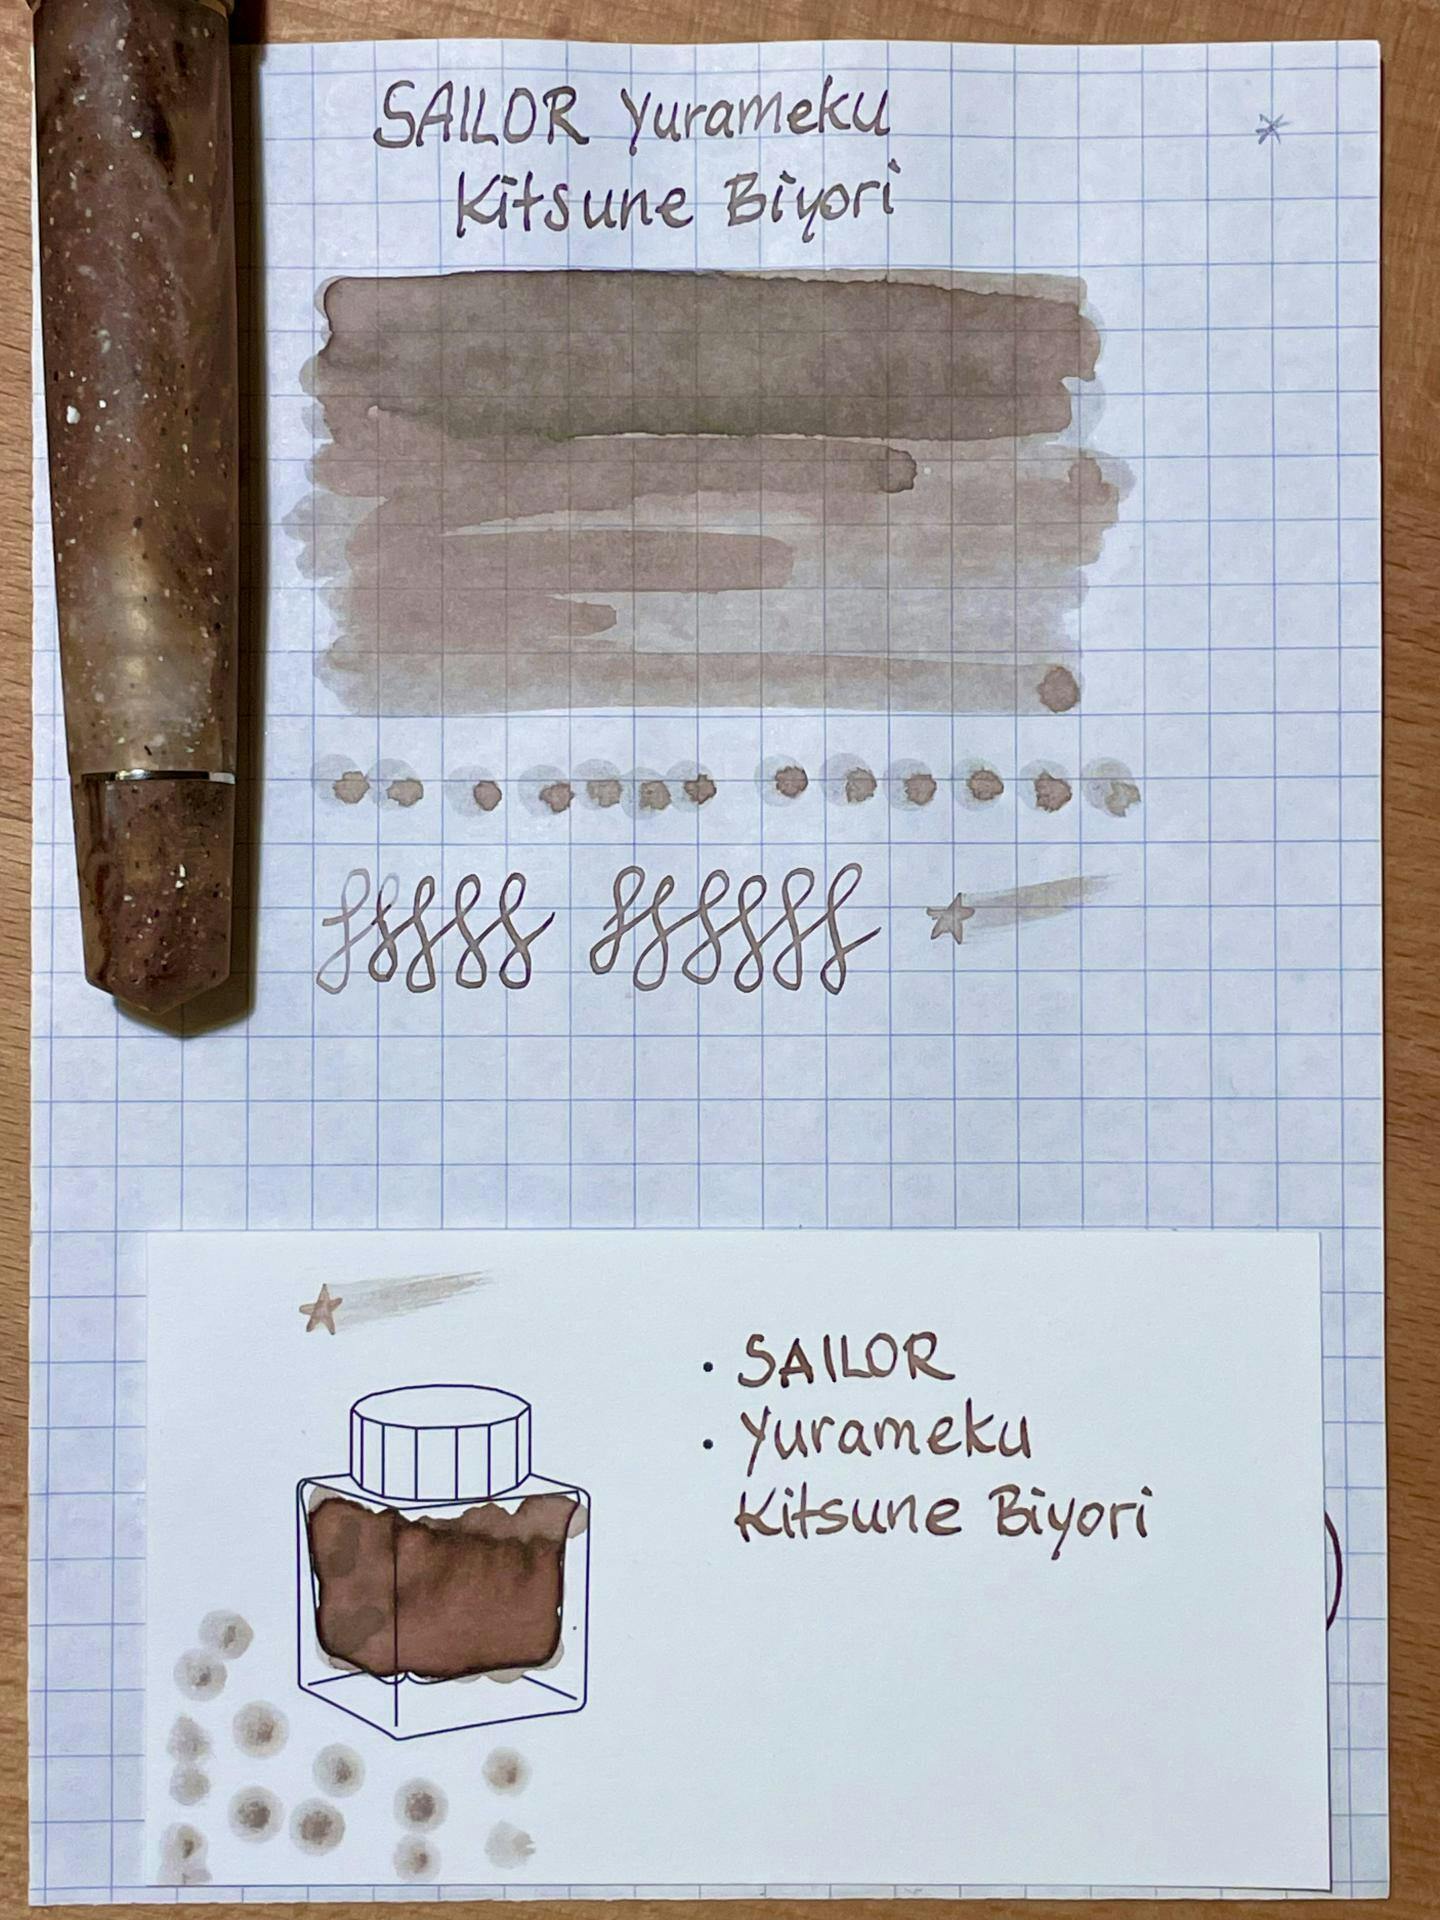 SAILOR Yurameku
Kitsune Biyori
• SAILOR
• Yurameku
Kitsune Biyori